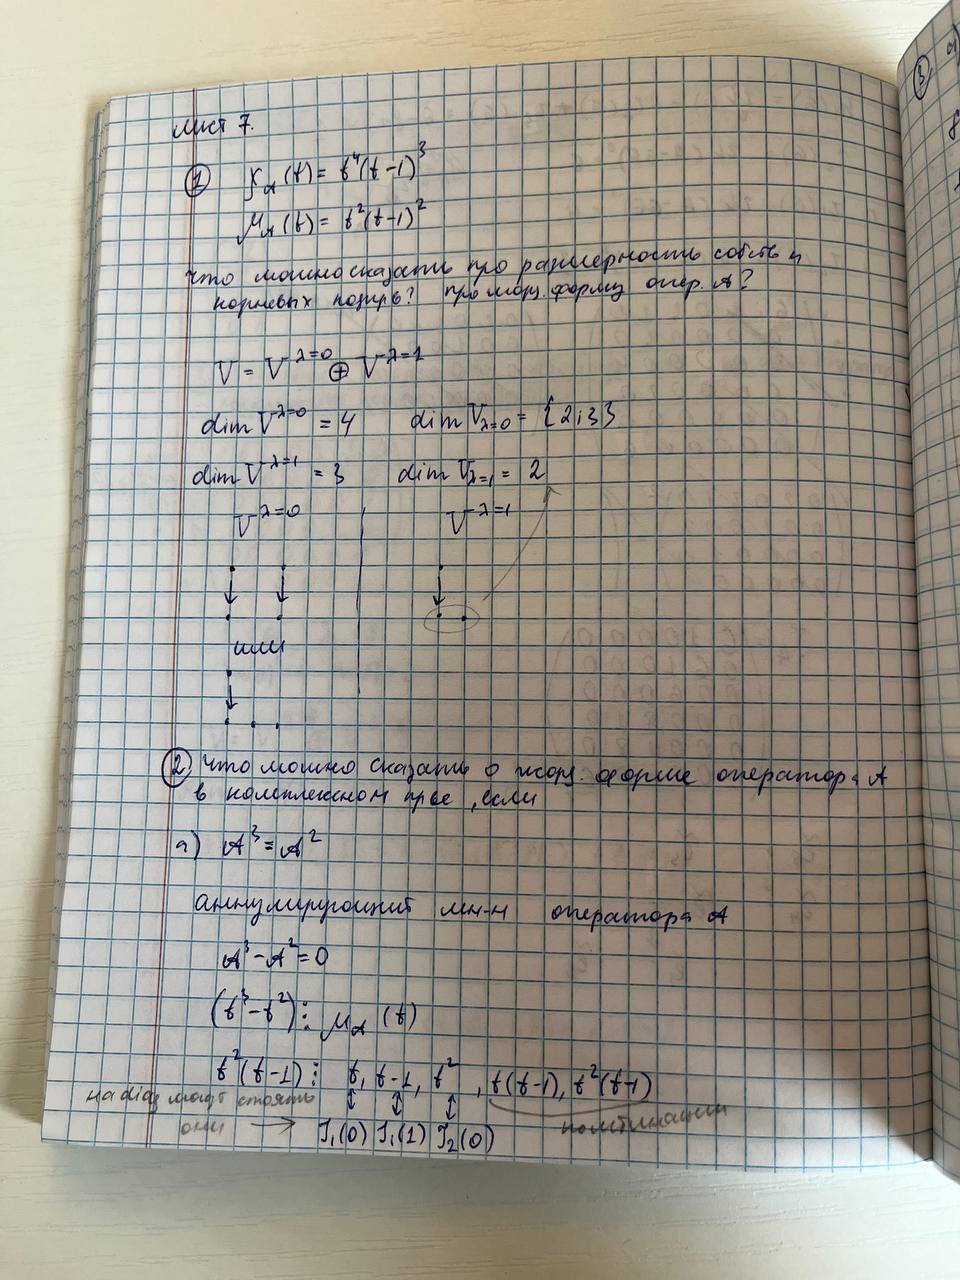 Лист 7.
① χ_A(t) = t⁴(t-1)³
μ_A(t) = t²(t-1)²
Что можно сказать про размерность собств и
корневых подпр-в? про жорд. форму опер. A?
V = V^{λ=0} ⊕ V^{λ=1}
dim V^{λ=0} = 4 dim V_{λ=0} = {2;3}
dim V^{λ=1} = 3 dim V_{λ=1} = 2
V^{λ=0} V^{λ=1}
или
② Что можно сказать о жорд. форме оператора A
в комплексном пр-ве, если
а) A³ = A²
аннулирующий мн-н оператора A
A³ - A² = 0
(t³ - t²) ⋮ μ_A (t)
t²(t-1) ⋮ t, t-1, t², t(t-1), t²(t-1)
на diag могут стоять
они → J₁(0) J₁(1) J₂(0)
③